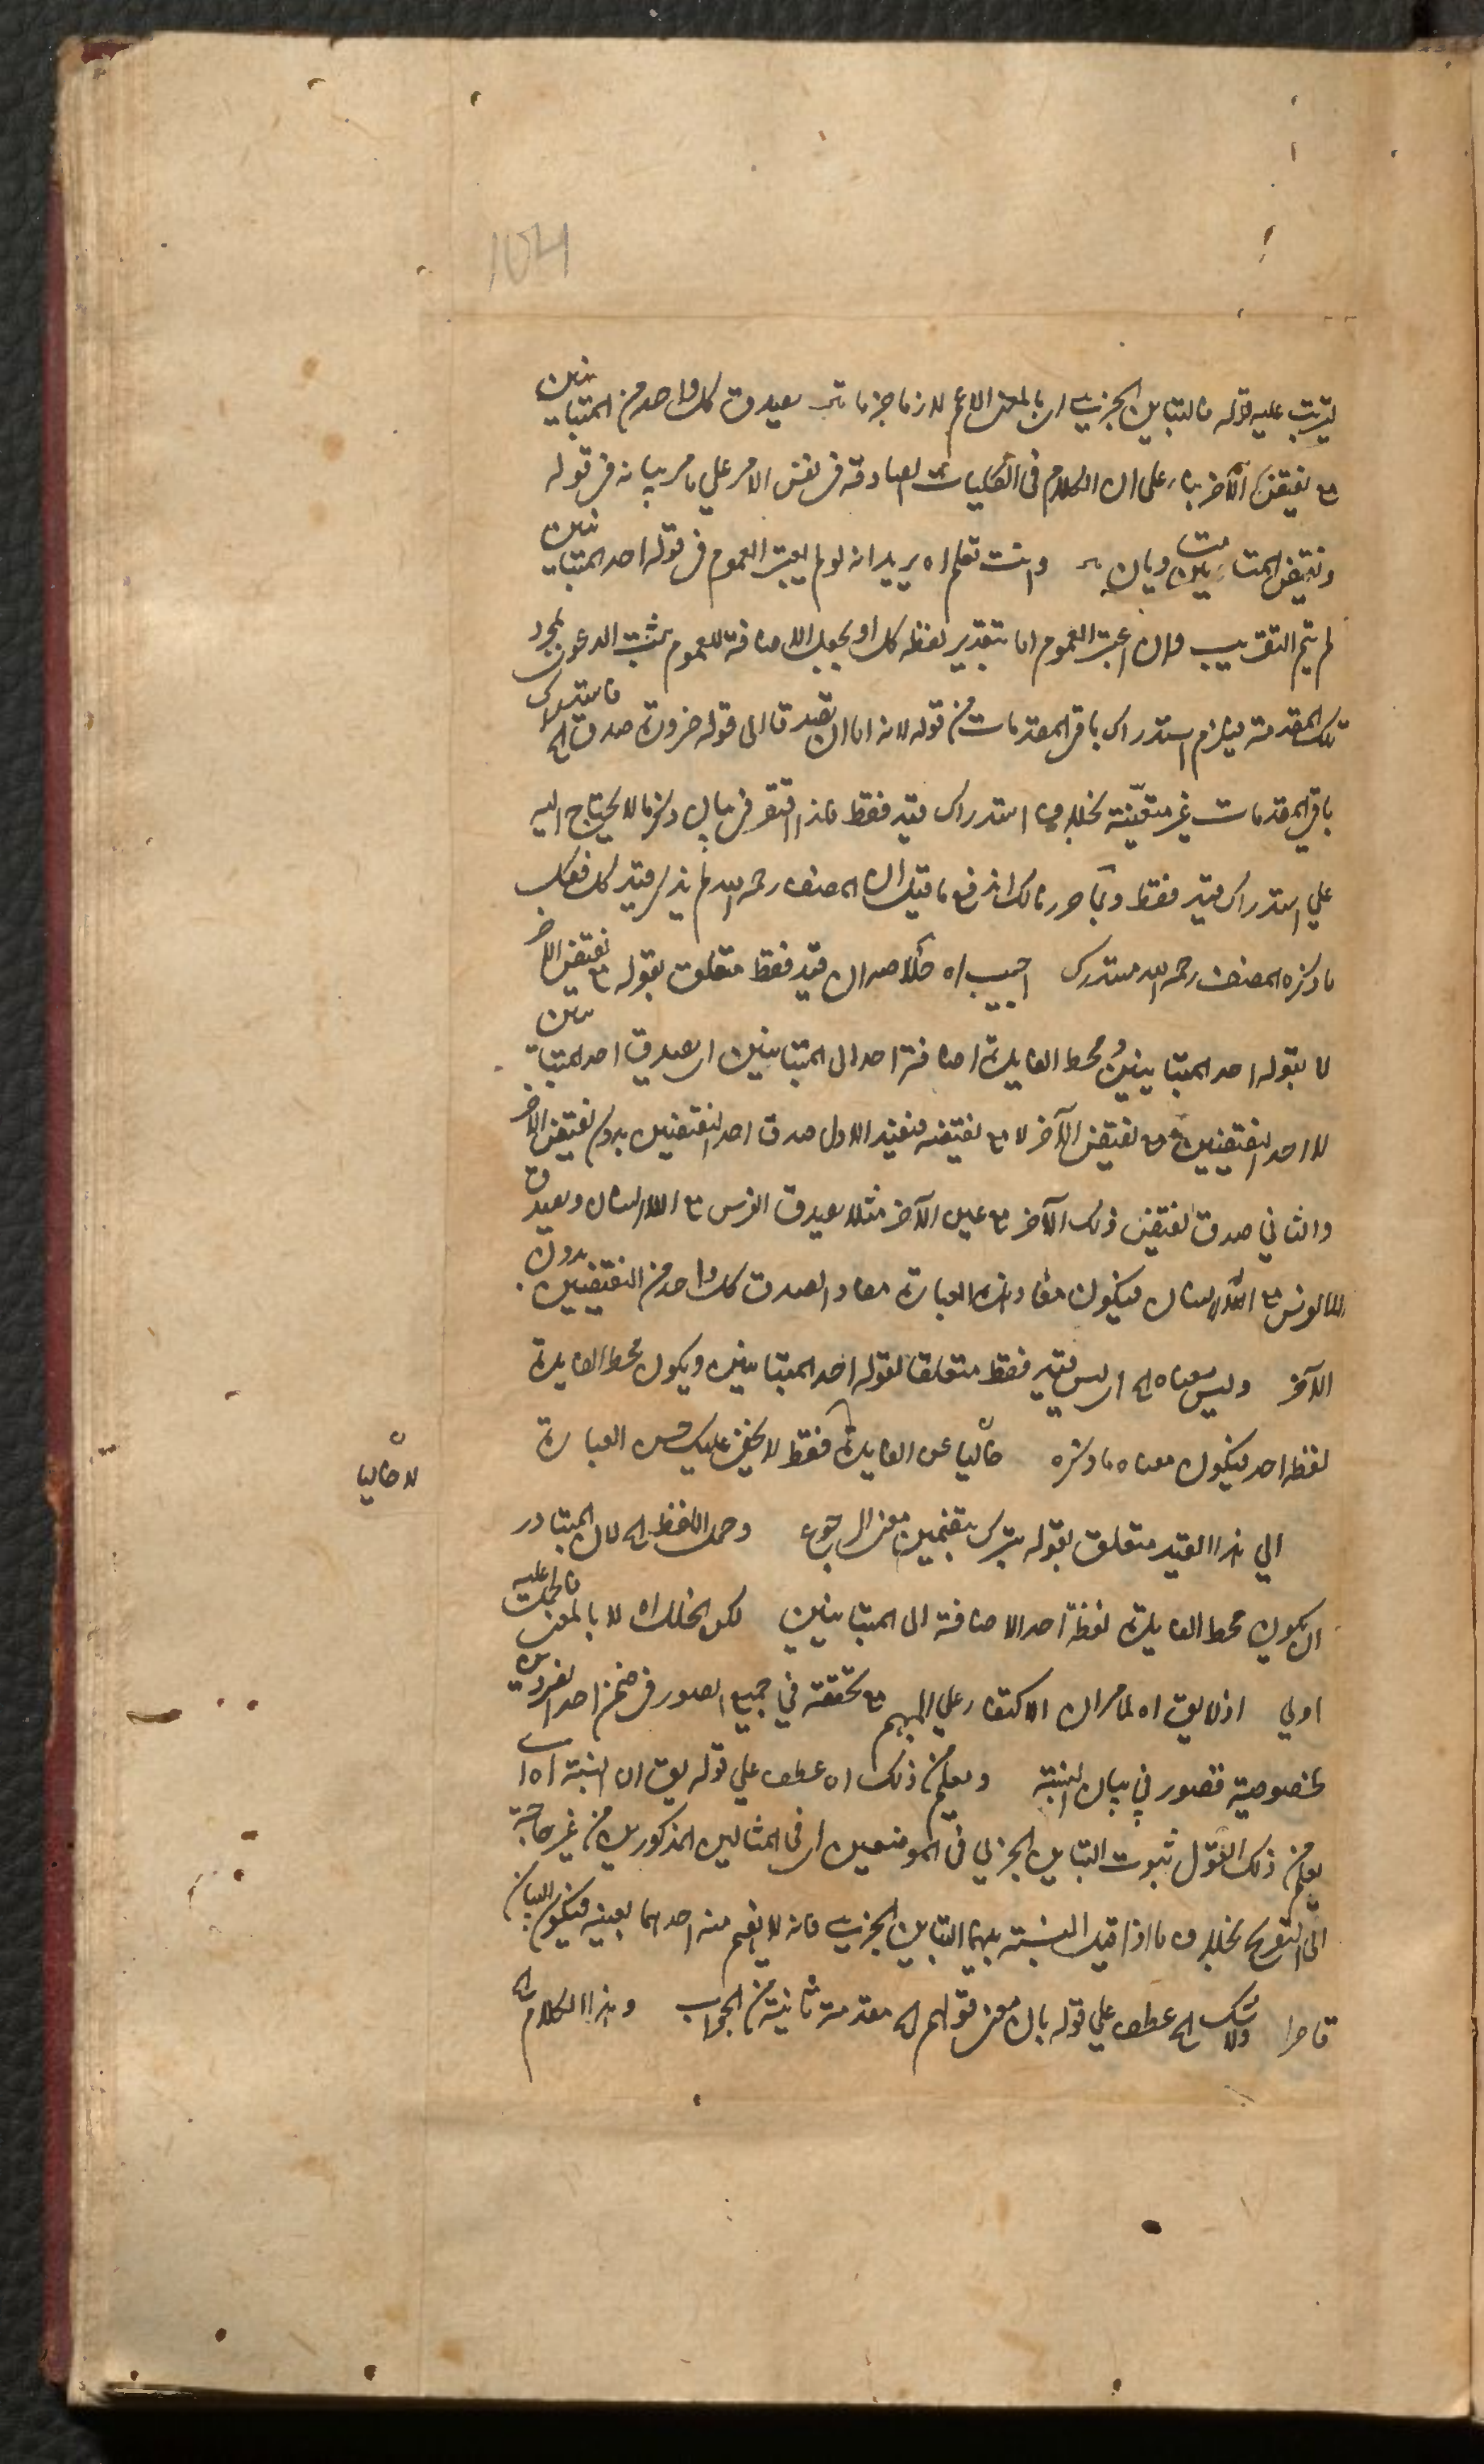 104
ليترتب عليه قوله فالتباين الجزئي اي بالمعنى الاعم لازما جزما قد يصدق كل واحد من المتباينين
مع نقيض الآخر بناء على ان الكلام في الكليات الصادقة في نفس الامر علي ما مر بيانه في قوله
ونقيض المتساويين متساويان وانت تعلم اه يريد انه لو لم يعتبر العموم في قوله احد المتباينين
لم يتم التقريب وان اعتبر العموم اما بتقدير لفظ كل او بجعل الاضافة للعموم يثبت الدعوى بمجرد
تلك المقدمة فيلزم استدراك باقي المقدمات من قوله لانه اما ان يصدقا الى قوله ضرورة صدق الخ فاستدراك
باقي المقدمات غير متعينة بخلاف استدراك قيد فقط فلذا اقتصر في بيان ذكر ما لا يحتاج اليه
علي استدراك قيد فقط وبما حررنا لك اندفع ما قيل ان المصنف رحمه الله لم يذكر قيد كل فعل
ما ذكره المصنف رحمه الله مستدرك اجيب اه خلاصه ان قيد فقط متعلق بقوله مع نقيض الآخر
لا بقوله احد المتباينين ومحط الفايدة اضافة احد الى المتباينين اي يصدق احد المتباينين
لا احد النقيضين مع نقيض الآخر لا مع نقيضه فيفيد الاول صدق احد النقيضين بدون نقيض الآخر
والثاني صدق نقيض ذلك الآخر مع عين الآخر مثلا يصدق الفرس مع اللاانسان ويصدق
اللافرس مع الانسان فيكون مفاد هذه العبارة مفاد الصدق كل واحد من النقيضين بدون
الآخر وليس معناه الخ اي ليس قيد فقط متعلقا لقوله احد المتباينين ويكون محط الفايدة
لفظ احد فيكون معناه ما ذكره خاليا عن الفايدة فقط لا يخفى عليك حسن العبارة
لا خاليا
الي هذا القيد متعلق بقوله يترك بتضمين معنى الرجوع وحمل اللفظ الخ لان المتبادر
ان يكون محط الفايدة لفظة احد الاضافة الى المتباينين لكن الخلل اه لا بالمعنى فالحمل عليه
اولي اذ لا يق اه لما مر ان الاكتفاء علي المبهم مع تحققه في جميع الصور في ضمن احد الفردين
بخصوصية قصور في بيان النسبة ويعلم من ذلك اه عطف علي قوله يق ان النسبة اه اي
يعلم من ذلك القول ثبوت التباين الجزئي في الموضعين اي في المثالين المذكورين من غير حاجة
الى التصريح بخلاف ما اذا قيل النسبة بينهما التباين الجزئي فانه لا يفهم منه احدهما بعينه فيكون البيان
قاصرا ولا شك الخ عطف علي قوله بان معنى قولهم الخ مقدمة ثانية من الجواب وهذا الكلام الخ